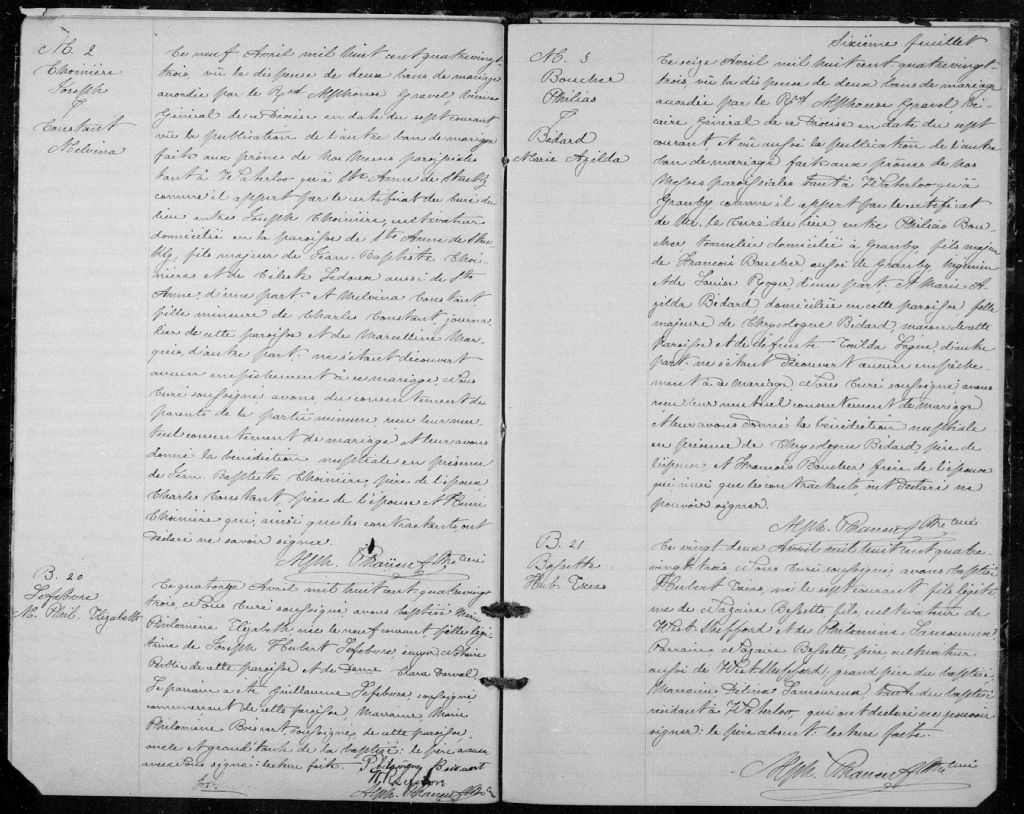 M. 2
Choinière
Joseph
&
Constant
Melvina
Ce neuf Avril mil huit cent quatrevingt
trois, vû la dispense de deux bans de mariage
accordée par le Rvd Alphonse Gravel, Vicaire
Général de ce Diocèse en date du sept courant
vûe la publication de l'autre ban de mariage
faite aux prônes de nos Messes paroissiales
tant à Waterloo qu'à Ste Anne de Stukely
comme il appert par le certificat du Curé du
lieu entre Joseph Choinière, cultivateur
domicilié en la paroisse de Ste Anne de Stu
kely, fils majeur de Jean-Baptiste Choi-
nière et de Céleste Ledoux aussi de Ste
Anne, d'une part. et Melvina Constant
fille mineure de Charles Constant, journa
lier de cette paroisse et de Marcelline Mar-
quis, d'autre part. ne s'étant découvert
aucun empêchement à ce mariage, Nous
Curé soussigné avons, du consentement des
parents de la partie mineure reçu leur mu
tuel consentement de mariage et leur avons
donné la bénédiction nuptiale en présence
de Jean Baptiste Choinière, père de l'époux
Charles Constant, père de l'épouse et
Choinière qui, ainsi que les contractants, ont
déclaré ne savoir signer.
Alph. Phaneuf Ptre curé
B. 20
Lefebvre
M. Phil. Elizabeth
Ce quatorze Avril mil huit cent quatrevingt
trois, Nous Curé soussigné avons baptisé Marie
Philomène Elizabeth née le neuf courant fille légi-
time de Joseph Hubert Lefebvre écuyer, Notaire
Public de cette paroisse et de Dame Clara Dorval
Le parrain a été Guillaume Lefebvre, soussigné,
commerçant de cette paroisse, Marraine Marie
Philomène Boisvert, soussignée, de cette paroisse.
oncle et grand'tante de la baptisée: le père a aussi
avec nous signé: lecture faite.
Boisvert
Alph. Phaneuf Ptre
Sixième feuillet
M. 3
Boucher
Philias
&
Bédard
Marie Azilda
Ce seize Avril mil huit cent quatrevingt-
trois, vû la dispense de deux bans de mariage
accordée par le Rvd Alphonse Gravel Vi-
caire Général de ce Diocèse en date du sept
courant et vûe aussi la publication de l'autre
ban de mariage faite aux prônes de nos
Messes paroissiales tant à Waterloo qu'à
Granby comme il appert par le certificat
de Mr. le Curé du lieu, entre Philias Bou-
cher tonnelier domicilié à Granby, fils majeur
de François Boucher aussi de Granby,
et de Louise Roger, d'une part. et Marie A-
zilda Bédard domiciliée en cette paroisse, fille
majeure de Chrysologue Bédard, maçon de cette
paroisse et de défunte d'autre
part. ne s'étant découvert aucun empêche-
ment à ce mariage, Nous Curé soussigné avons
reçu leur mutuel consentement de mariage
et leur avons donné la bénédiction nuptiale
en présence de Chrysologue Bédard, père de
l'épouse et François Boucher frère de l'époux
qui ainsi que les contractants, ont déclaré ne
pouvoir signer.
Alph. Phaneuf Ptre curé
B. 21
Bessette
Hub.
Ce vingt deux Avril mil huit cent quatre
vingt-trois Nous Curé soussigné avons baptisé
Hubert né le sept courant fils légiti
me de Nazaire Bessette fils cultivateur de
West Shefford et de Philomène Lamoureux
Parrain Nazaire Bessette, père cultivateur
aussi de West Shefford, grand père du baptisé,
Marraine Délina Lamoureux, tante du baptisé
résidant à Waterloo, qui ont déclaré ne pouvoir
signer: le père absent: lecture faite.
Alph. Phaneuf Ptre curé